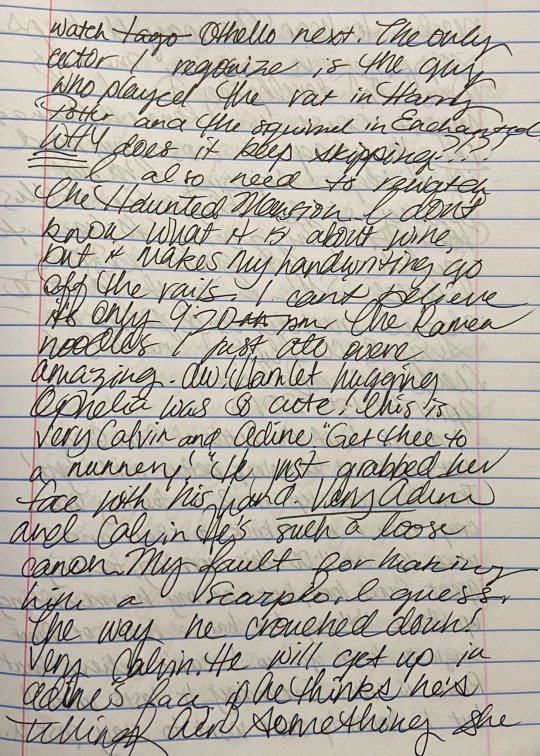 watch ~~Iago~~ Othello next. The only
actor I regonize is the guy
who played the rat in Harry
Potter and the squirrel in Enchanted.
WHY does it keep skipping?!?!?
I also need to rewatch
The Haunted Mansion. I don't
know what it is about wine,
but it makes my handwriting go
off the rails. I can't believe
it's only 9:20 pm. The Ramen
noodles I just ate were
amazing. Aw! Hamlet hugging
Ophelia was so cute! This is
very Calvin and Adine "Get thee to
a nunnery!" He just grabbed her
face with his hand. Very Adine
and Calvin. He's such a loose
canon. My fault for making
him a Scorpio, I guess.
The way he crouched down!
Very Calvin. He will get up in
Adine's face if he thinks he's
telling him something she